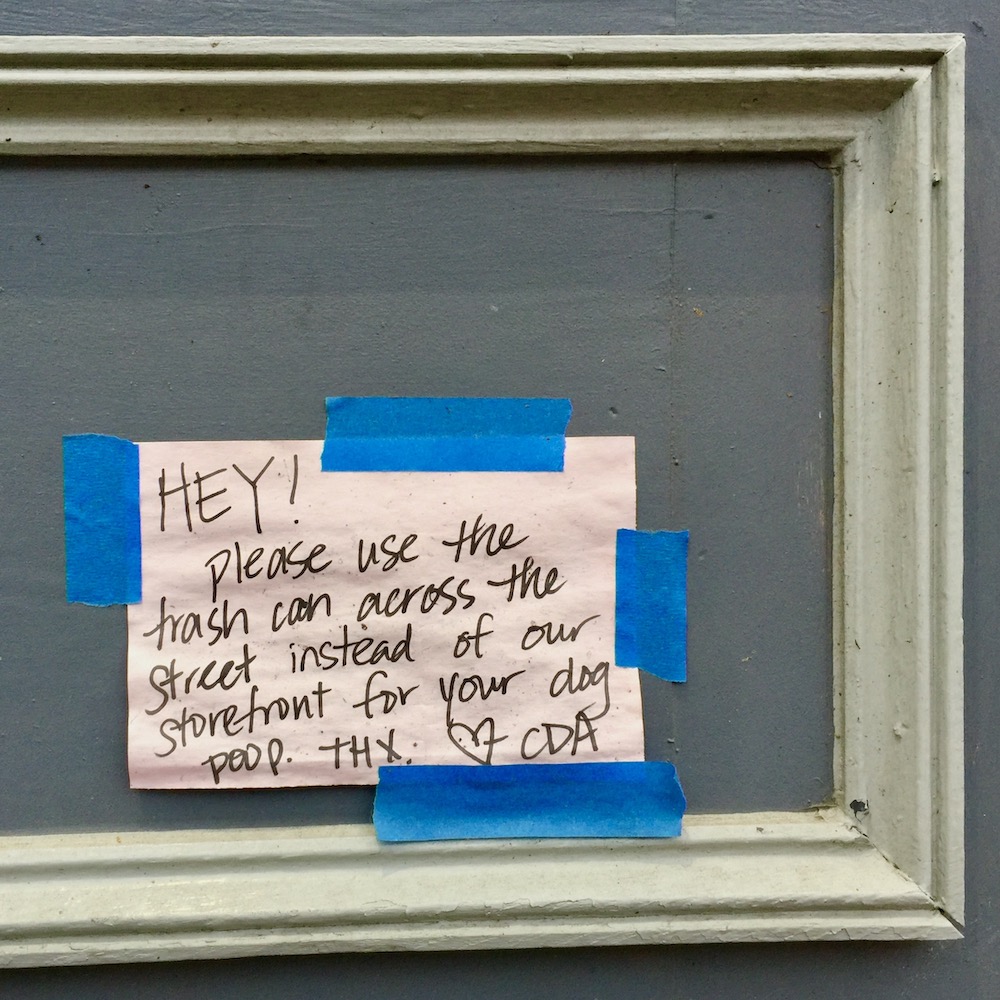 HEY!
please use the
trash can across the
street instead of our
storefront for your dog
poop. THX. ♡ CDA